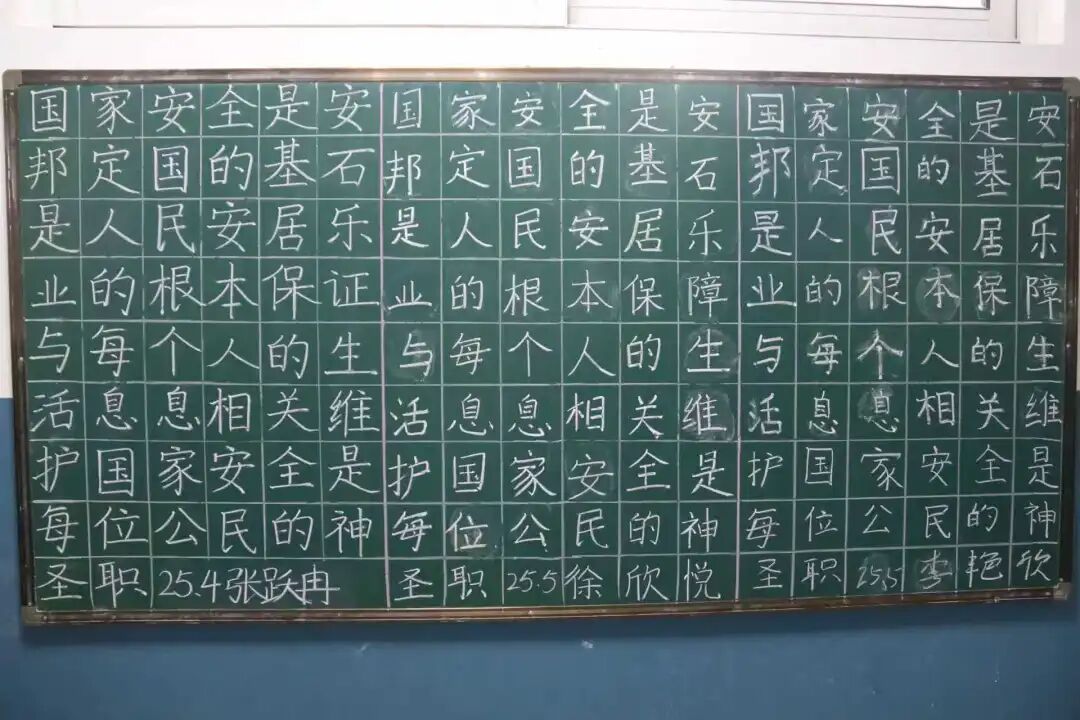 国家安全是安
邦定国的基石
是人民安居乐
业的根本保证
与每个人的生
活息息相关维
护国家安全是
每位公民的神
圣职25.4张跃冉
国家安全是安
邦定国的基石
是人民安居乐
业的根本保障
与每个人的生
活息息相关维
护国家安全是
每位公民的神
圣职25.5徐欣悦
国家安全是安
邦定国的基石
是人民安居乐
业的根本保障
与每个人的生
活息息相关维
护国家安全是
每位公民的神
圣职25.5李艳欣